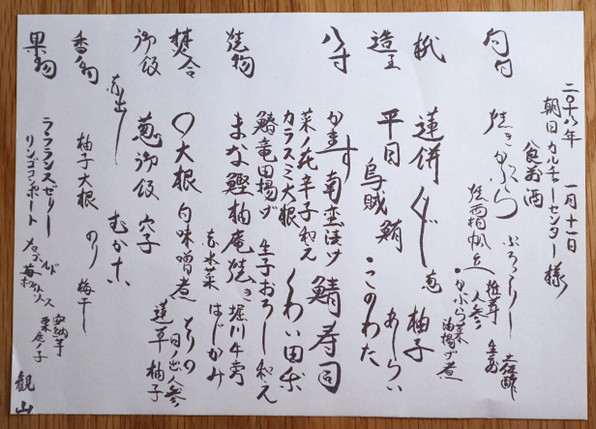 二〇十六年 一月十一日
朝日カルチャーセンター様
食前酒
焼きかぶら ぶろっこりー
椎茸 人参 生姜 土佐酢
かぶら菜 油揚げ煮
椀 蓮餅 ぐじ 葱 柚子
造里 平目 烏賊 鮪 あしらい
このわた
八寸 かます南蛮漬け 鯖寿司
菜ノ花辛子和え くわい田楽
カラスミ大根 生子おろし和え
鰆竜田揚げ
焼物 まな鰹柚庵焼き 堀川牛蒡 はじかみ
水菜
焚合 〇大根 白味噌煮 とりの
日ノ出人参
蓮草 柚子
御飯 葱御飯 穴子 むかご
赤出し
香の物 柚子大根 のり 梅干し
果物 ラ・フランスゼリー
リンゴコンポート 苺 ソース
安納芋 栗 鹿ノ子
観山